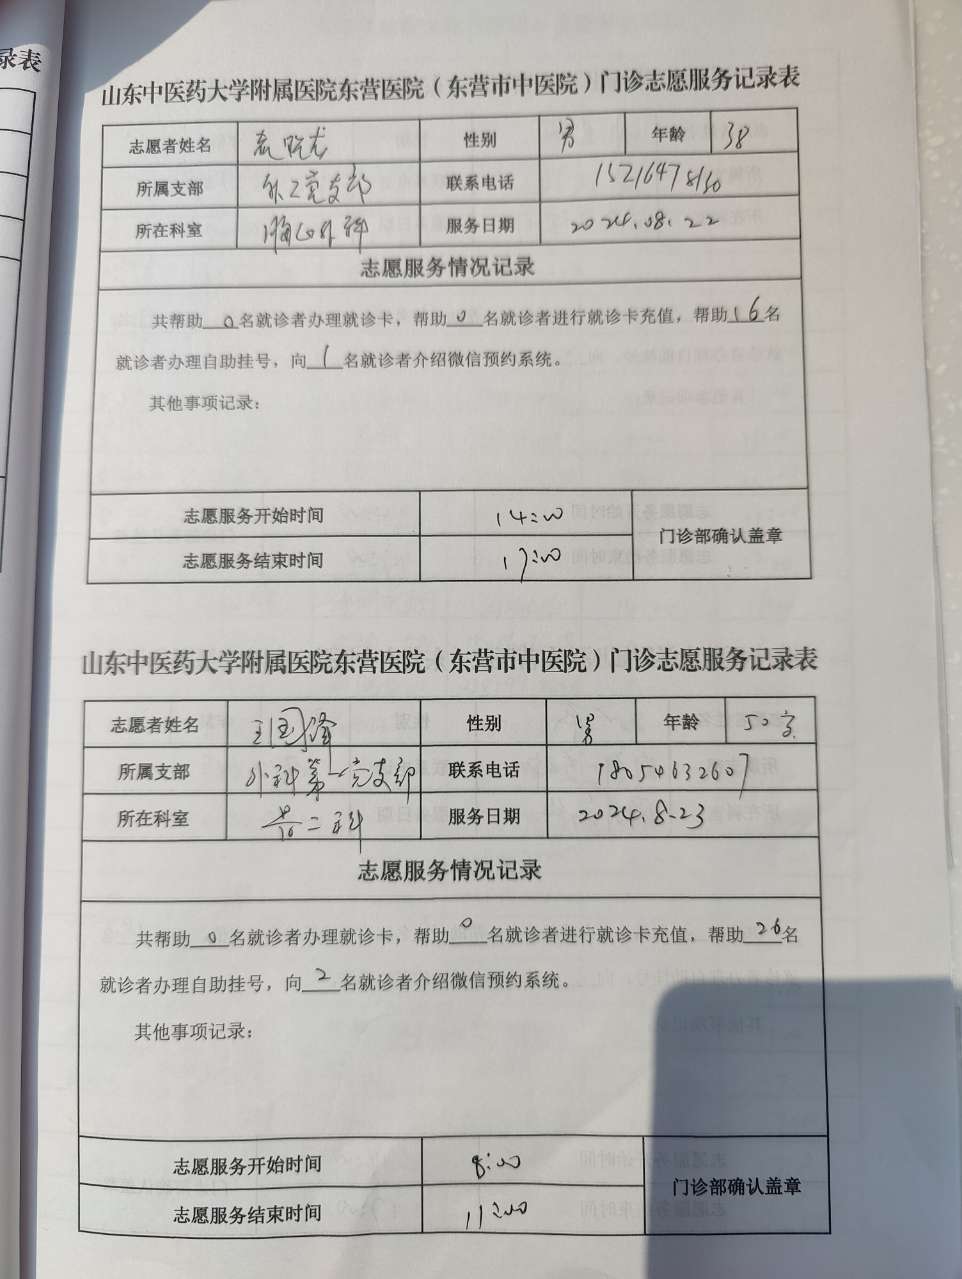 录表
山东中医药大学附属医院东营医院（东营市中医院）门诊志愿服务记录表
志愿者姓名 性别 男 年龄 38
所属支部 外二党支部 联系电话 15216478150
所在科室 外科 服务日期 2024.08.22
志愿服务情况记录
共帮助 0 名就诊者办理就诊卡，帮助 0 名就诊者进行就诊卡充值，帮助 16 名
就诊者办理自助挂号，向 1 名就诊者介绍微信预约系统。
其他事项记录：
志愿服务开始时间 14:00
门诊部确认盖章
志愿服务结束时间 17:00
山东中医药大学附属医院东营医院（东营市中医院）门诊志愿服务记录表
志愿者姓名 王国 性别 男 年龄 50岁
所属支部 外科第一党支部 联系电话 18054632607
所在科室 二科 服务日期 2024.8-23
志愿服务情况记录
共帮助 0 名就诊者办理就诊卡，帮助 0 名就诊者进行就诊卡充值，帮助 26 名
就诊者办理自助挂号，向 2 名就诊者介绍微信预约系统。
其他事项记录：
志愿服务开始时间 8:00
门诊部确认盖章
志愿服务结束时间 11:00